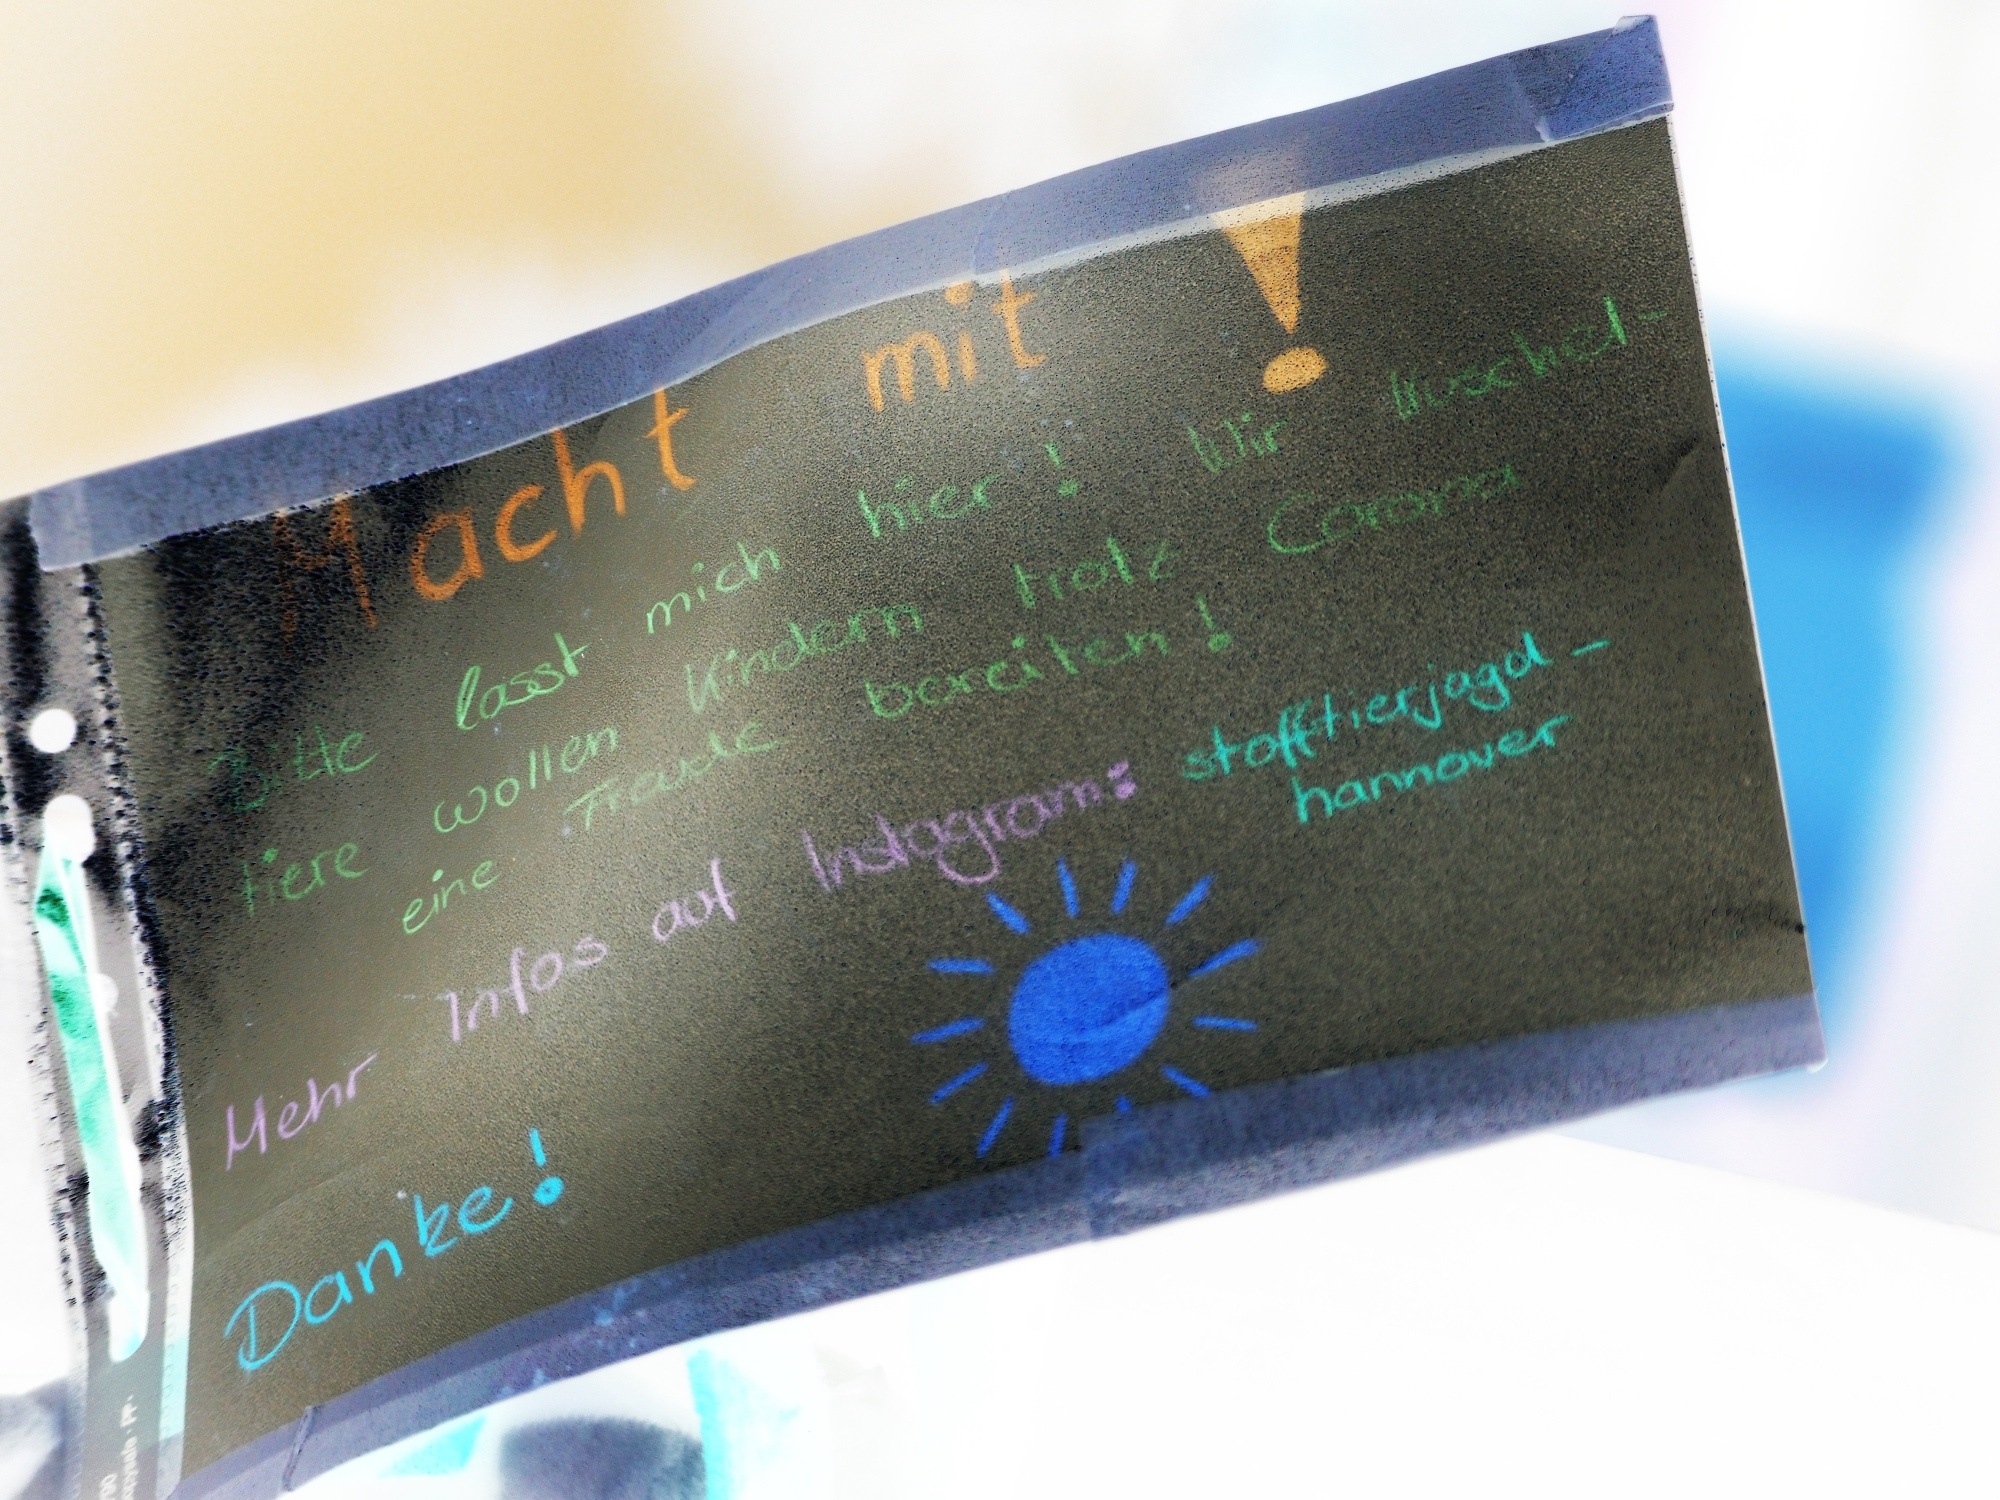 Macht mit!
Bitte lasst mich hier! Wir Kuschel-
tiere wollen Kindern trotz Corona
eine Freude bereiten!
Mehr Infos auf Instagram: stofftierjagd-
hannover
Danke!